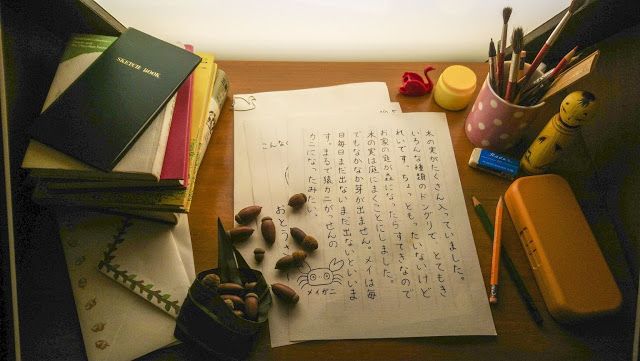 SKETCH BOOK
木の実がたくさん入っていました。
いろんな種類のドングリで、とてもき
れいです。ちょっともったいないけど
お家の庭が森になったらすてきなので
木の実は庭にまくことにしました。
でもなかなか芽が出ません。メイは毎
日毎日まだ出ないまだ出ないといいま
す。まるで猿カニがっせんの
カニになったみたい。
おとうさ
こんなく
メイガニ